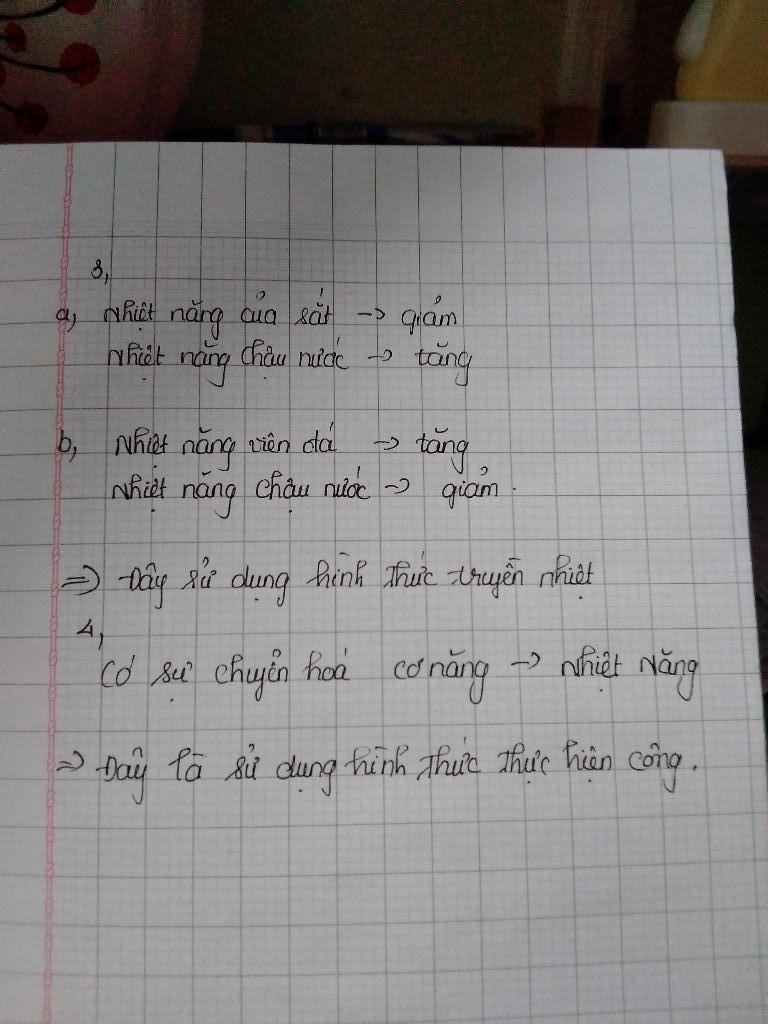 3,
a, Nhiệt năng của sắt -> giảm
Nhiệt năng chậu nước -> tăng
b, Nhiệt năng viên đá -> tăng
Nhiệt năng chậu nước -> giảm.
=> Đây sử dụng hình thức truyền nhiệt
4,
Có sự chuyển hoá cơ năng -> Nhiệt Năng
=> Đây là sử dụng hình thức thực hiện công.